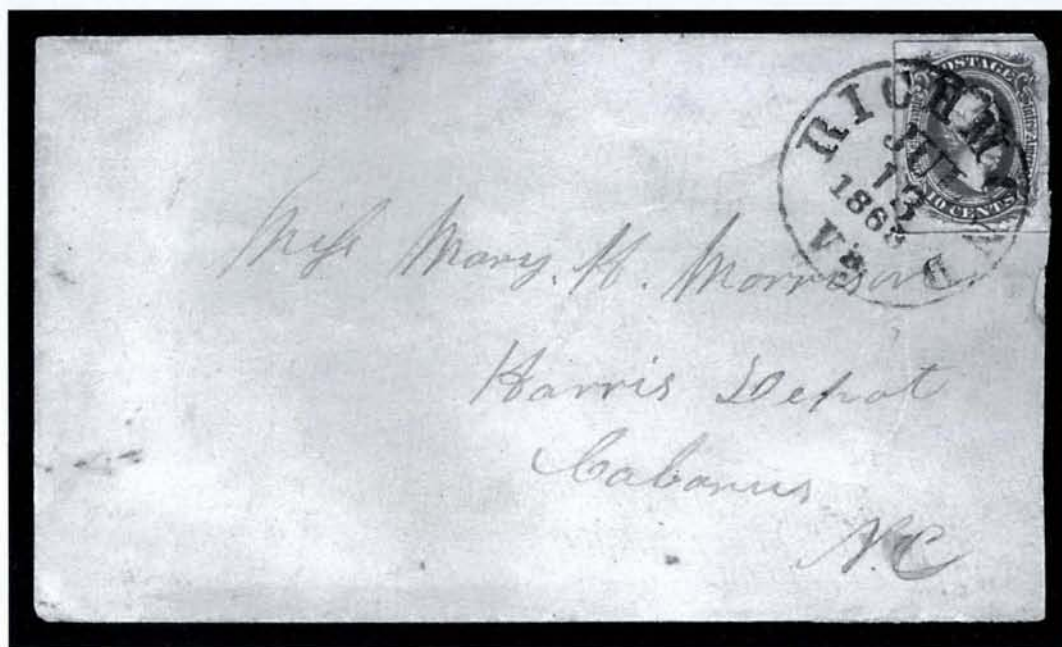 POSTAGE
RICHMOND
JUL
13
1863
VA.
10 CENTS
Miss Mary. H. Morrison
Harris Depot
Cabarrus
N.C